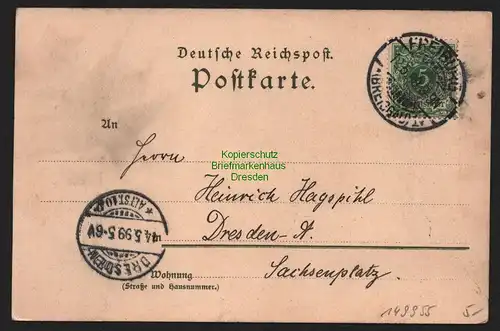 Deutsche Reichspost.
Postkarte.
FREIBURG
5
An
Herrn
Kopierschutz
Briefmarkenhaus
Dresden
Heinrich Hagspihl
Dresden-A.
Sachsenplatz.
* ALTST.
4.5.99.5-6V
DRESDEN
Wohnung
(Straße und Hausnummer.)
149955
5-